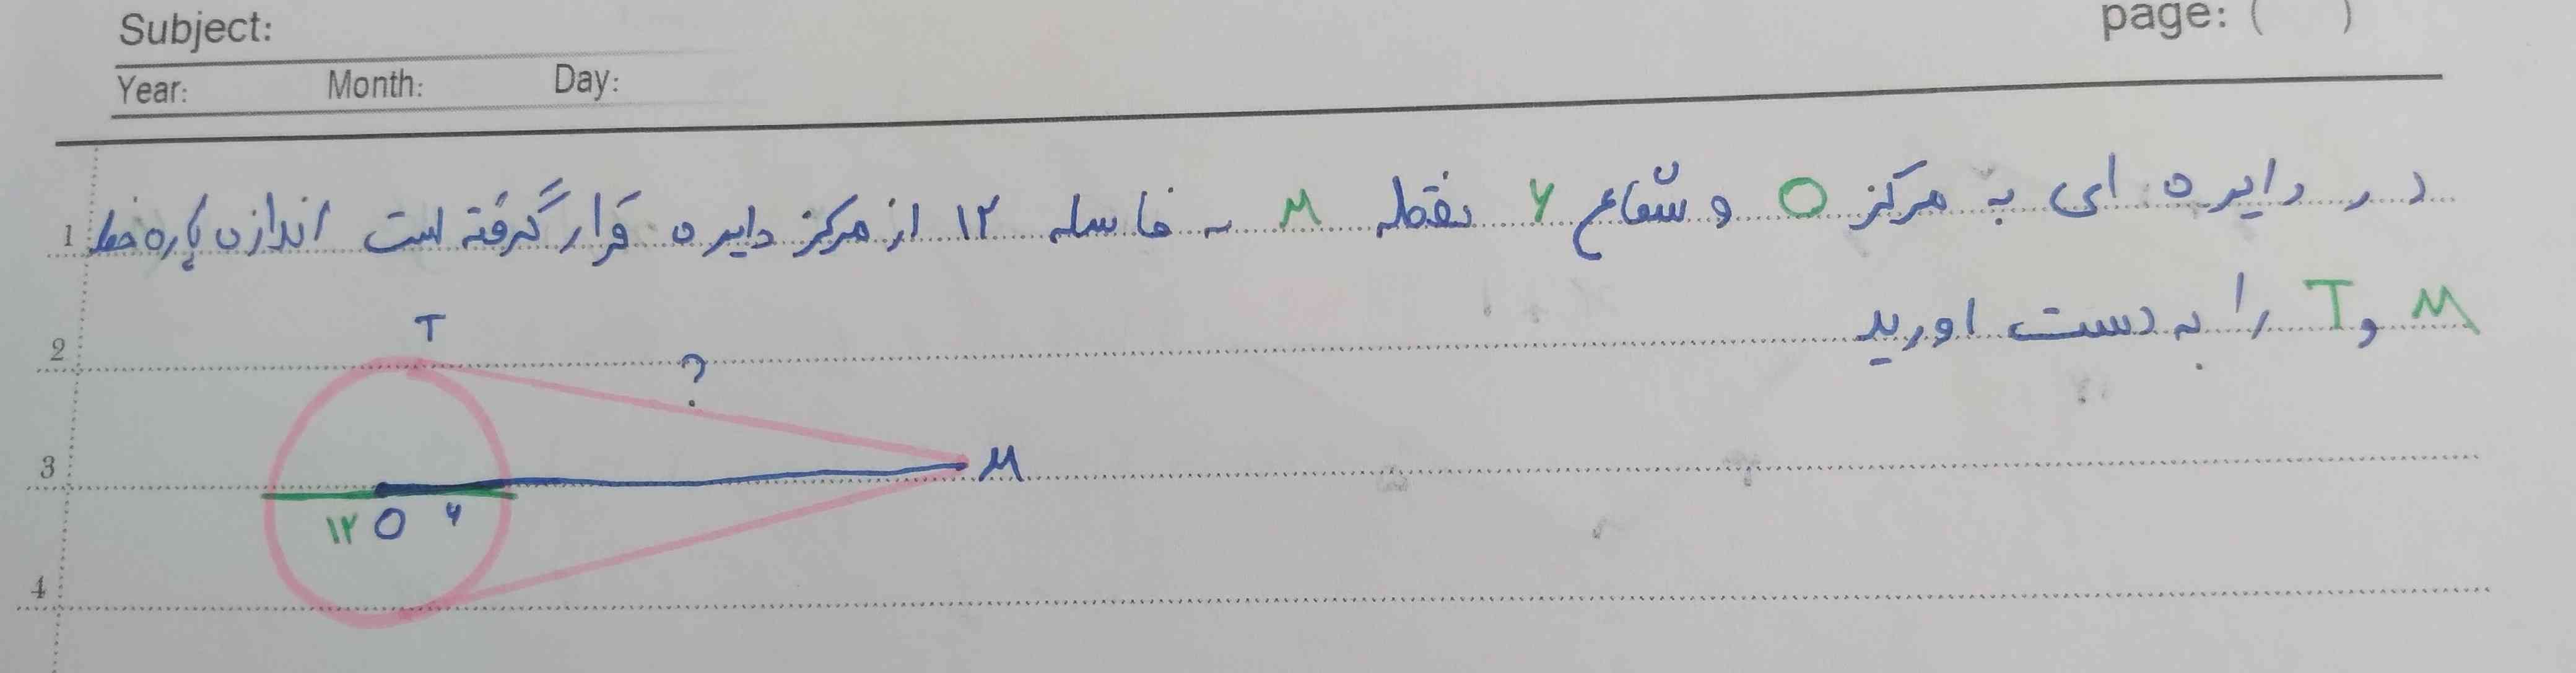 Subject:
page: ( )
Year: Month: Day:
1 در دایره ای به مرکز O و شعاع ۶ نقطه M به فاسله ۱۲ از مرکز دایره قرار گرفته است اندازه پاره خط
M و T را به دست اورید
2
T
?
3
M
۱۲ O ۶
4